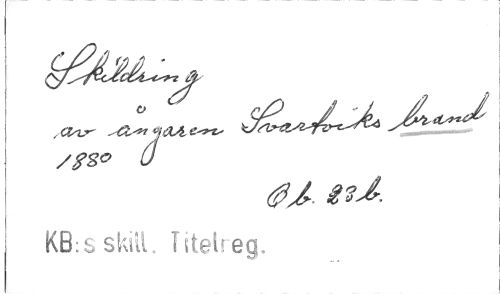 Skildring
av ångaren Svartviks brand
1880
Ob. 23 b.
KB:s skill. Titelreg.